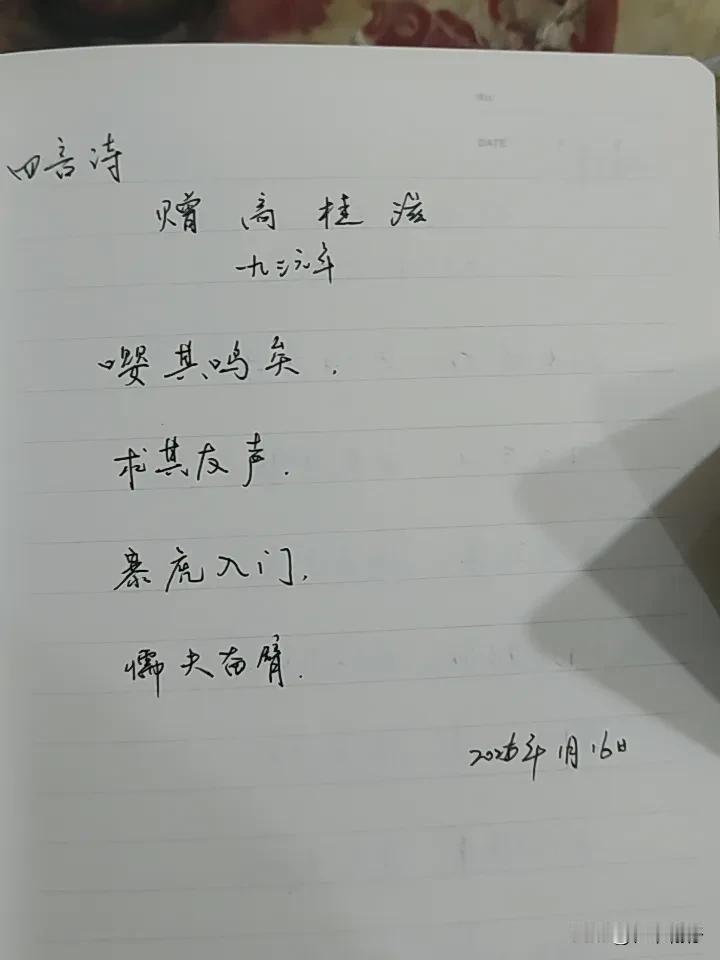 DATE
四言诗
赠高桂滋
一九三六年
嘤其鸣矣，
求其友声。
暴虎入门，
懦夫奋臂。
2026年1月16日